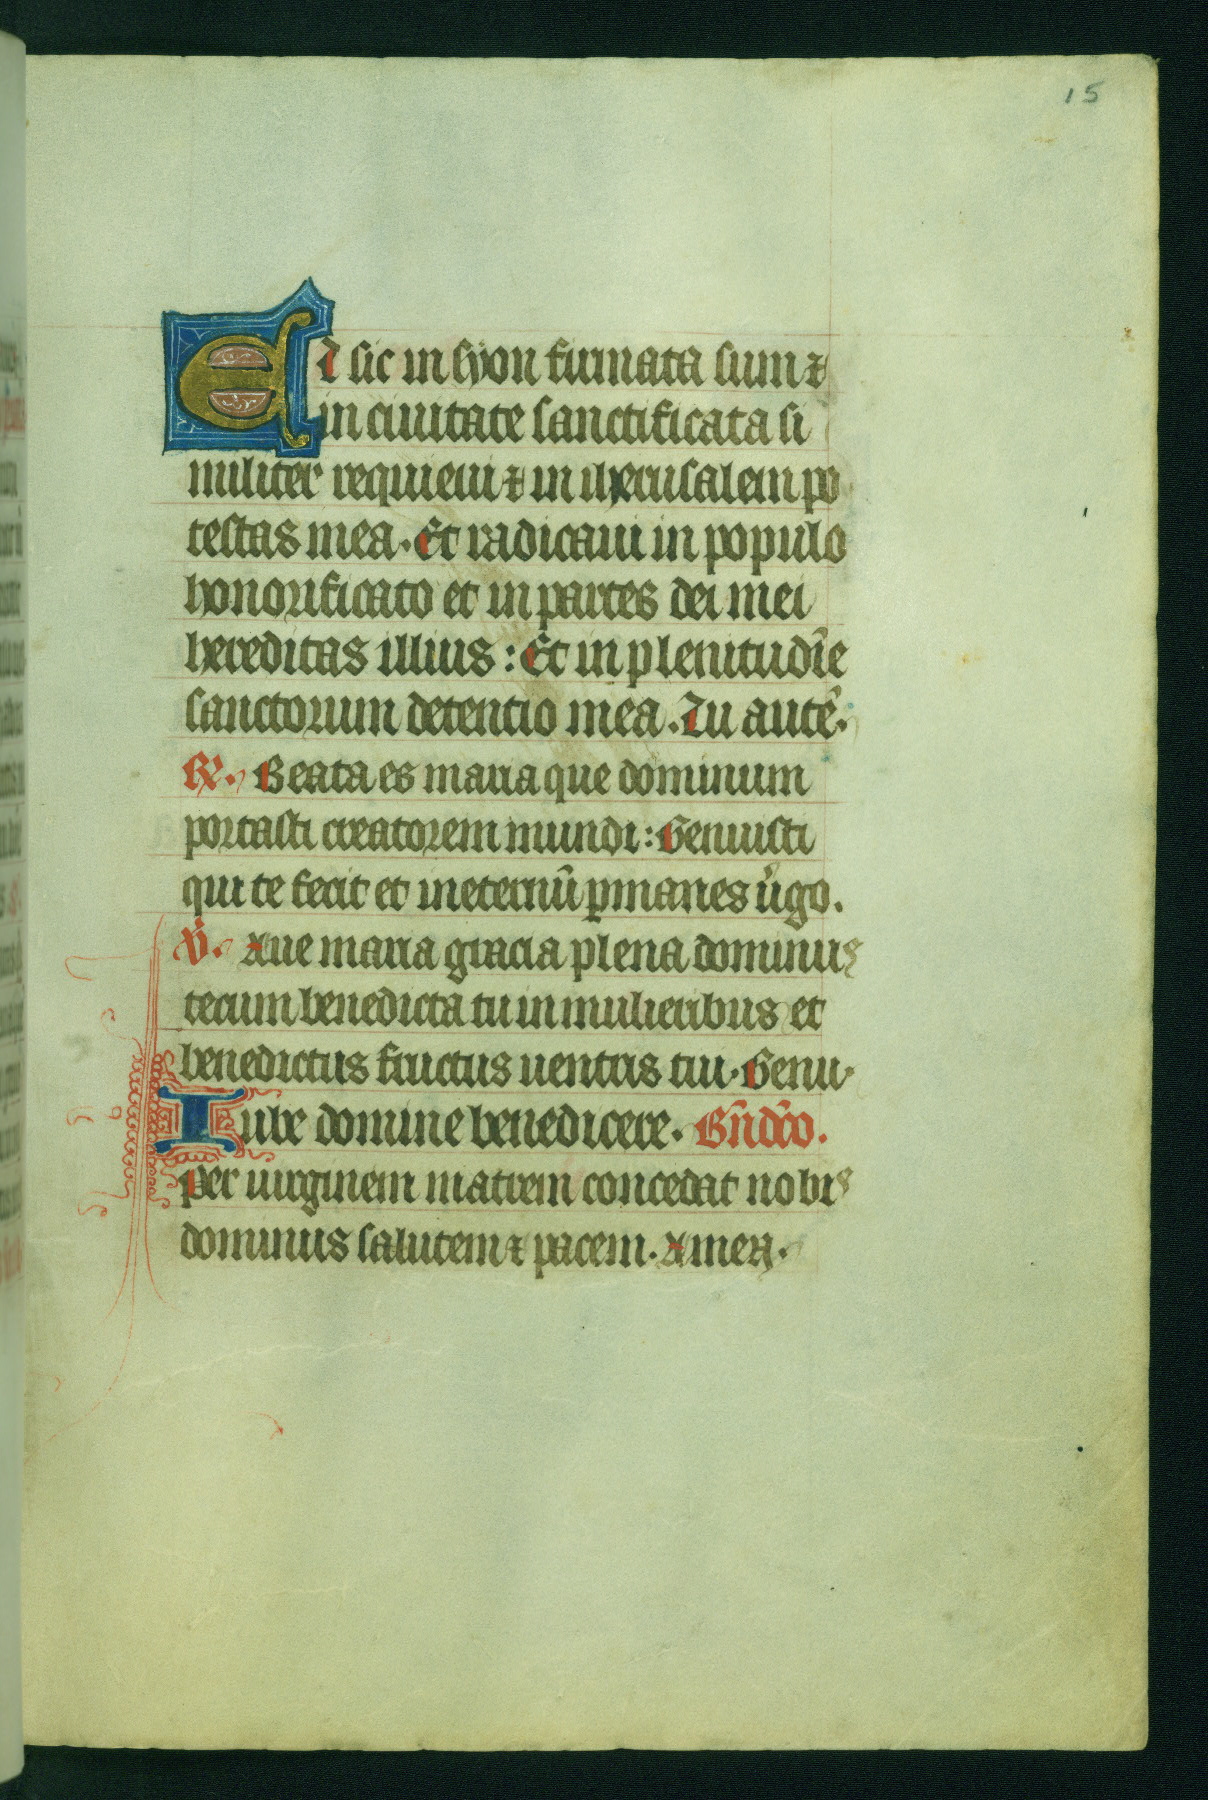 15
Et sic in syon firmata sum ⁊
in ciuitate sanctificata si
militer requieui ⁊ in iherusalem po
testas mea. Et radicaui in populo
honorificato et in partes dei mei
hereditas illius: Et in plenitudīe
sanctorum detentio mea. Tu autē.
℟. Beata es maria que dominum
portasti creatorem mundi: Genuisti
qui te fecit et ineternū ꝑmanes v̄go.
℣. Aue maria gracia plena dominus
tecum benedicta tu in mulieribus et
benedictus fructus uentris tui. Genu.
Iube domine benedicere. Bn̄dc̄o.
Per uirginem matrem concedat nobis
dominus salutem ⁊ pacem. Amen.